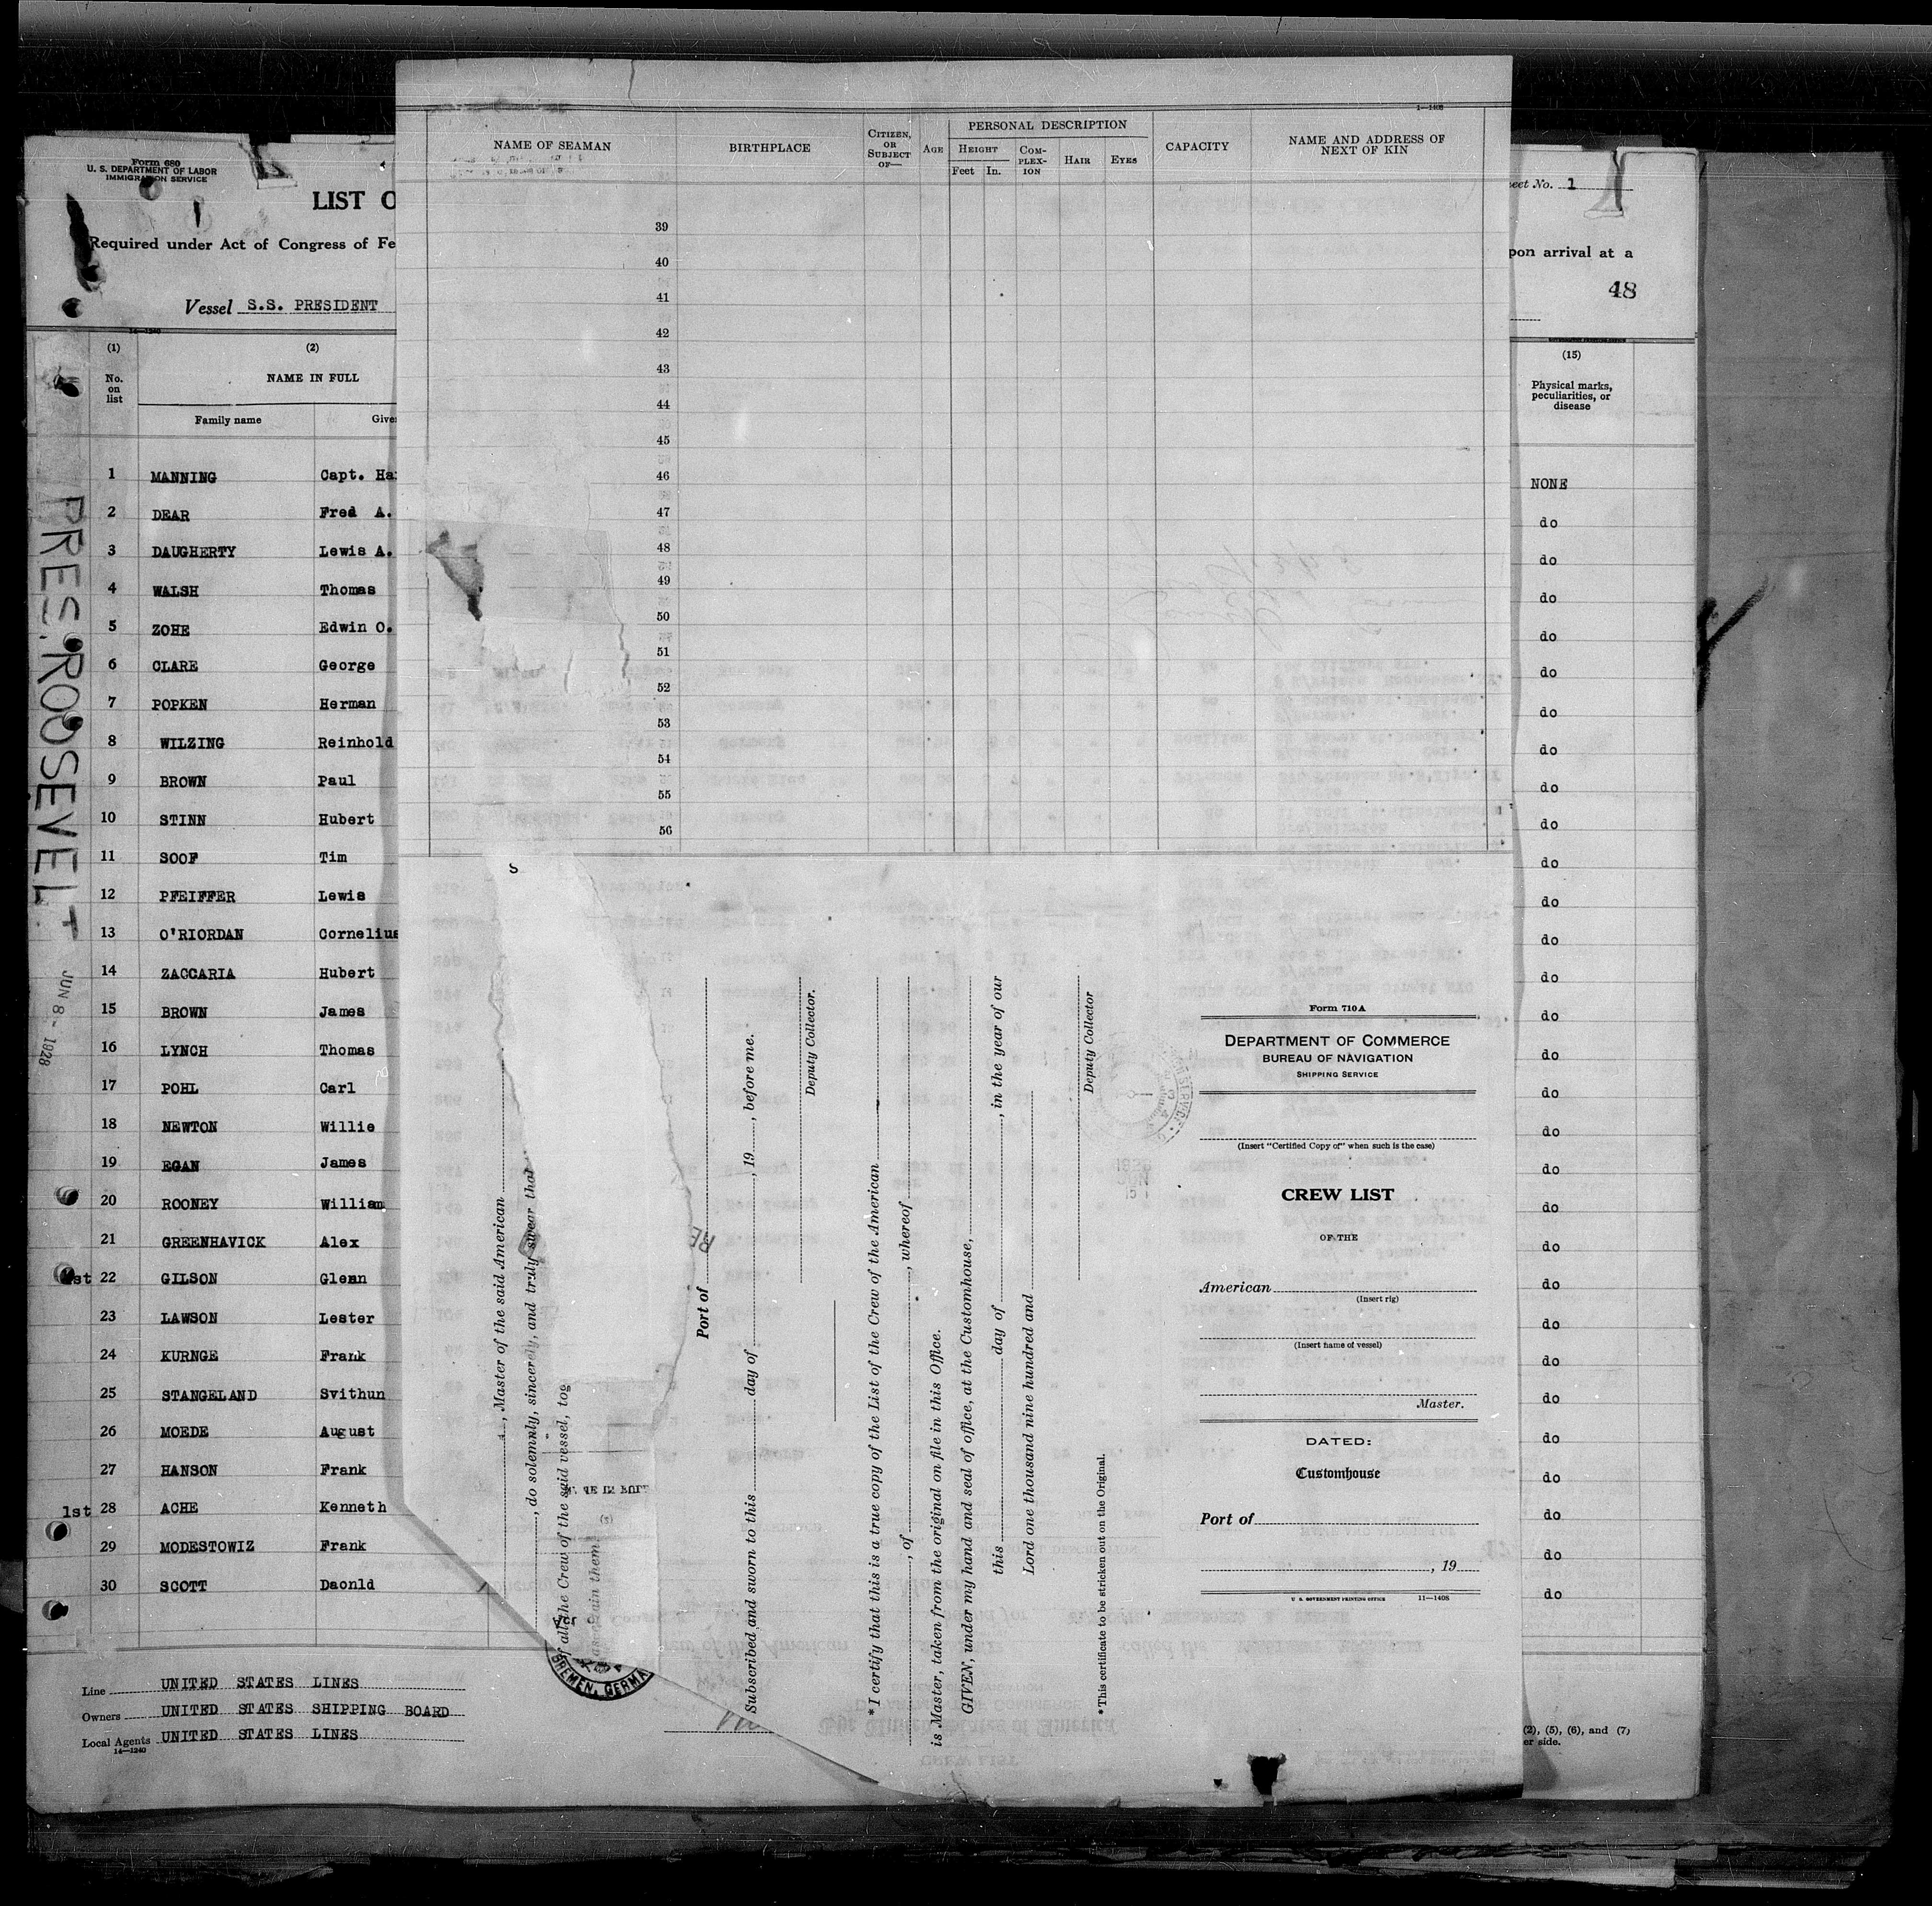 Form 680
U. S. DEPARTMENT OF LABOR
IMMIGRATION SERVICE
LIST O
Required under Act of Congress of Fe
Vessel S.S. PRESIDENT
14—1240
(1) (2)
No. on list
NAME IN FULL
Family name Give
1 MANNING Capt. Ha
2 DEAR Fred A.
3 DAUGHERTY Lewis A.
4 WALSH Thomas
5 ZOHE Edwin O.
6 CLARE George
7 POPKEN Herman
8 WILZING Reinhold
9 BROWN Paul
10 STINN Hubert
11 SOOF Tim
12 PFEIFFER Lewis
13 O'RIORDAN Cornelius
14 ZACCARIA Hubert
15 BROWN James
16 LYNCH Thomas
17 POHL Carl
18 NEWTON Willie
19 EGAN James
20 ROONEY William
21 GREENHAVICK Alex
1st 22 GILSON Glenn
23 LAWSON Lester
24 KURNGE Frank
25 STANGELAND Svithun
26 MOEDE August
27 HANSON Frank
1st 28 ACHE Kenneth
29 MODESTOWIZ Frank
30 SCOTT Daonld
Line UNITED STATES LINES
Owners UNITED STATES SHIPPING BOARD
Local Agents UNITED STATES LINES
14—1240
PRES. ROOSEVELT
JUN 8 - 1928
1—1408
NAME OF SEAMAN
BIRTHPLACE
CITIZEN, OR SUBJECT OF—
AGE
PERSONAL DESCRIPTION
HEIGHT
Feet In.
COM-PLEX-ION
HAIR
EYES
CAPACITY
NAME AND ADDRESS OF NEXT OF KIN
39
40
41
42
43
44
45
46
47
48
49
50
51
52
53
54
55
56
S
, Master of the said American
, do solemnly, sincerely, and truly swear that
of all the Crew of the said vessel, tog
ascertain them.
BREMEN, GERMA
Port of
Subscribed and sworn to this day of , 19 , before me.
Deputy Collector.
*I certify that this is a true copy of the List of the Crew of the American
, of , whereof
is Master, taken from the original on file in this Office.
GIVEN, under my hand and seal of office, at the Customhouse,
this day of , in the year of our
Lord one thousand nine hundred and
Deputy Collector
*This certificate to be stricken out on the Original.
Form 710A
DEPARTMENT OF COMMERCE
BUREAU OF NAVIGATION
SHIPPING SERVICE
(Insert "Certified Copy of" when such is the case)
CREW LIST
OF THE
American
(Insert rig)
(Insert name of vessel)
Master.
DATED:
Customhouse
Port of
, 19
U. S. GOVERNMENT PRINTING OFFICE 11—1408
eet No. 1
pon arrival at a
48
(15)
Physical marks, peculiarities, or disease
NONE
do
do
do
do
do
do
do
do
do
do
do
do
do
do
do
do
do
do
do
do
do
do
do
do
do
do
do
do
do
(2), (5), (6), and (7)
er side.